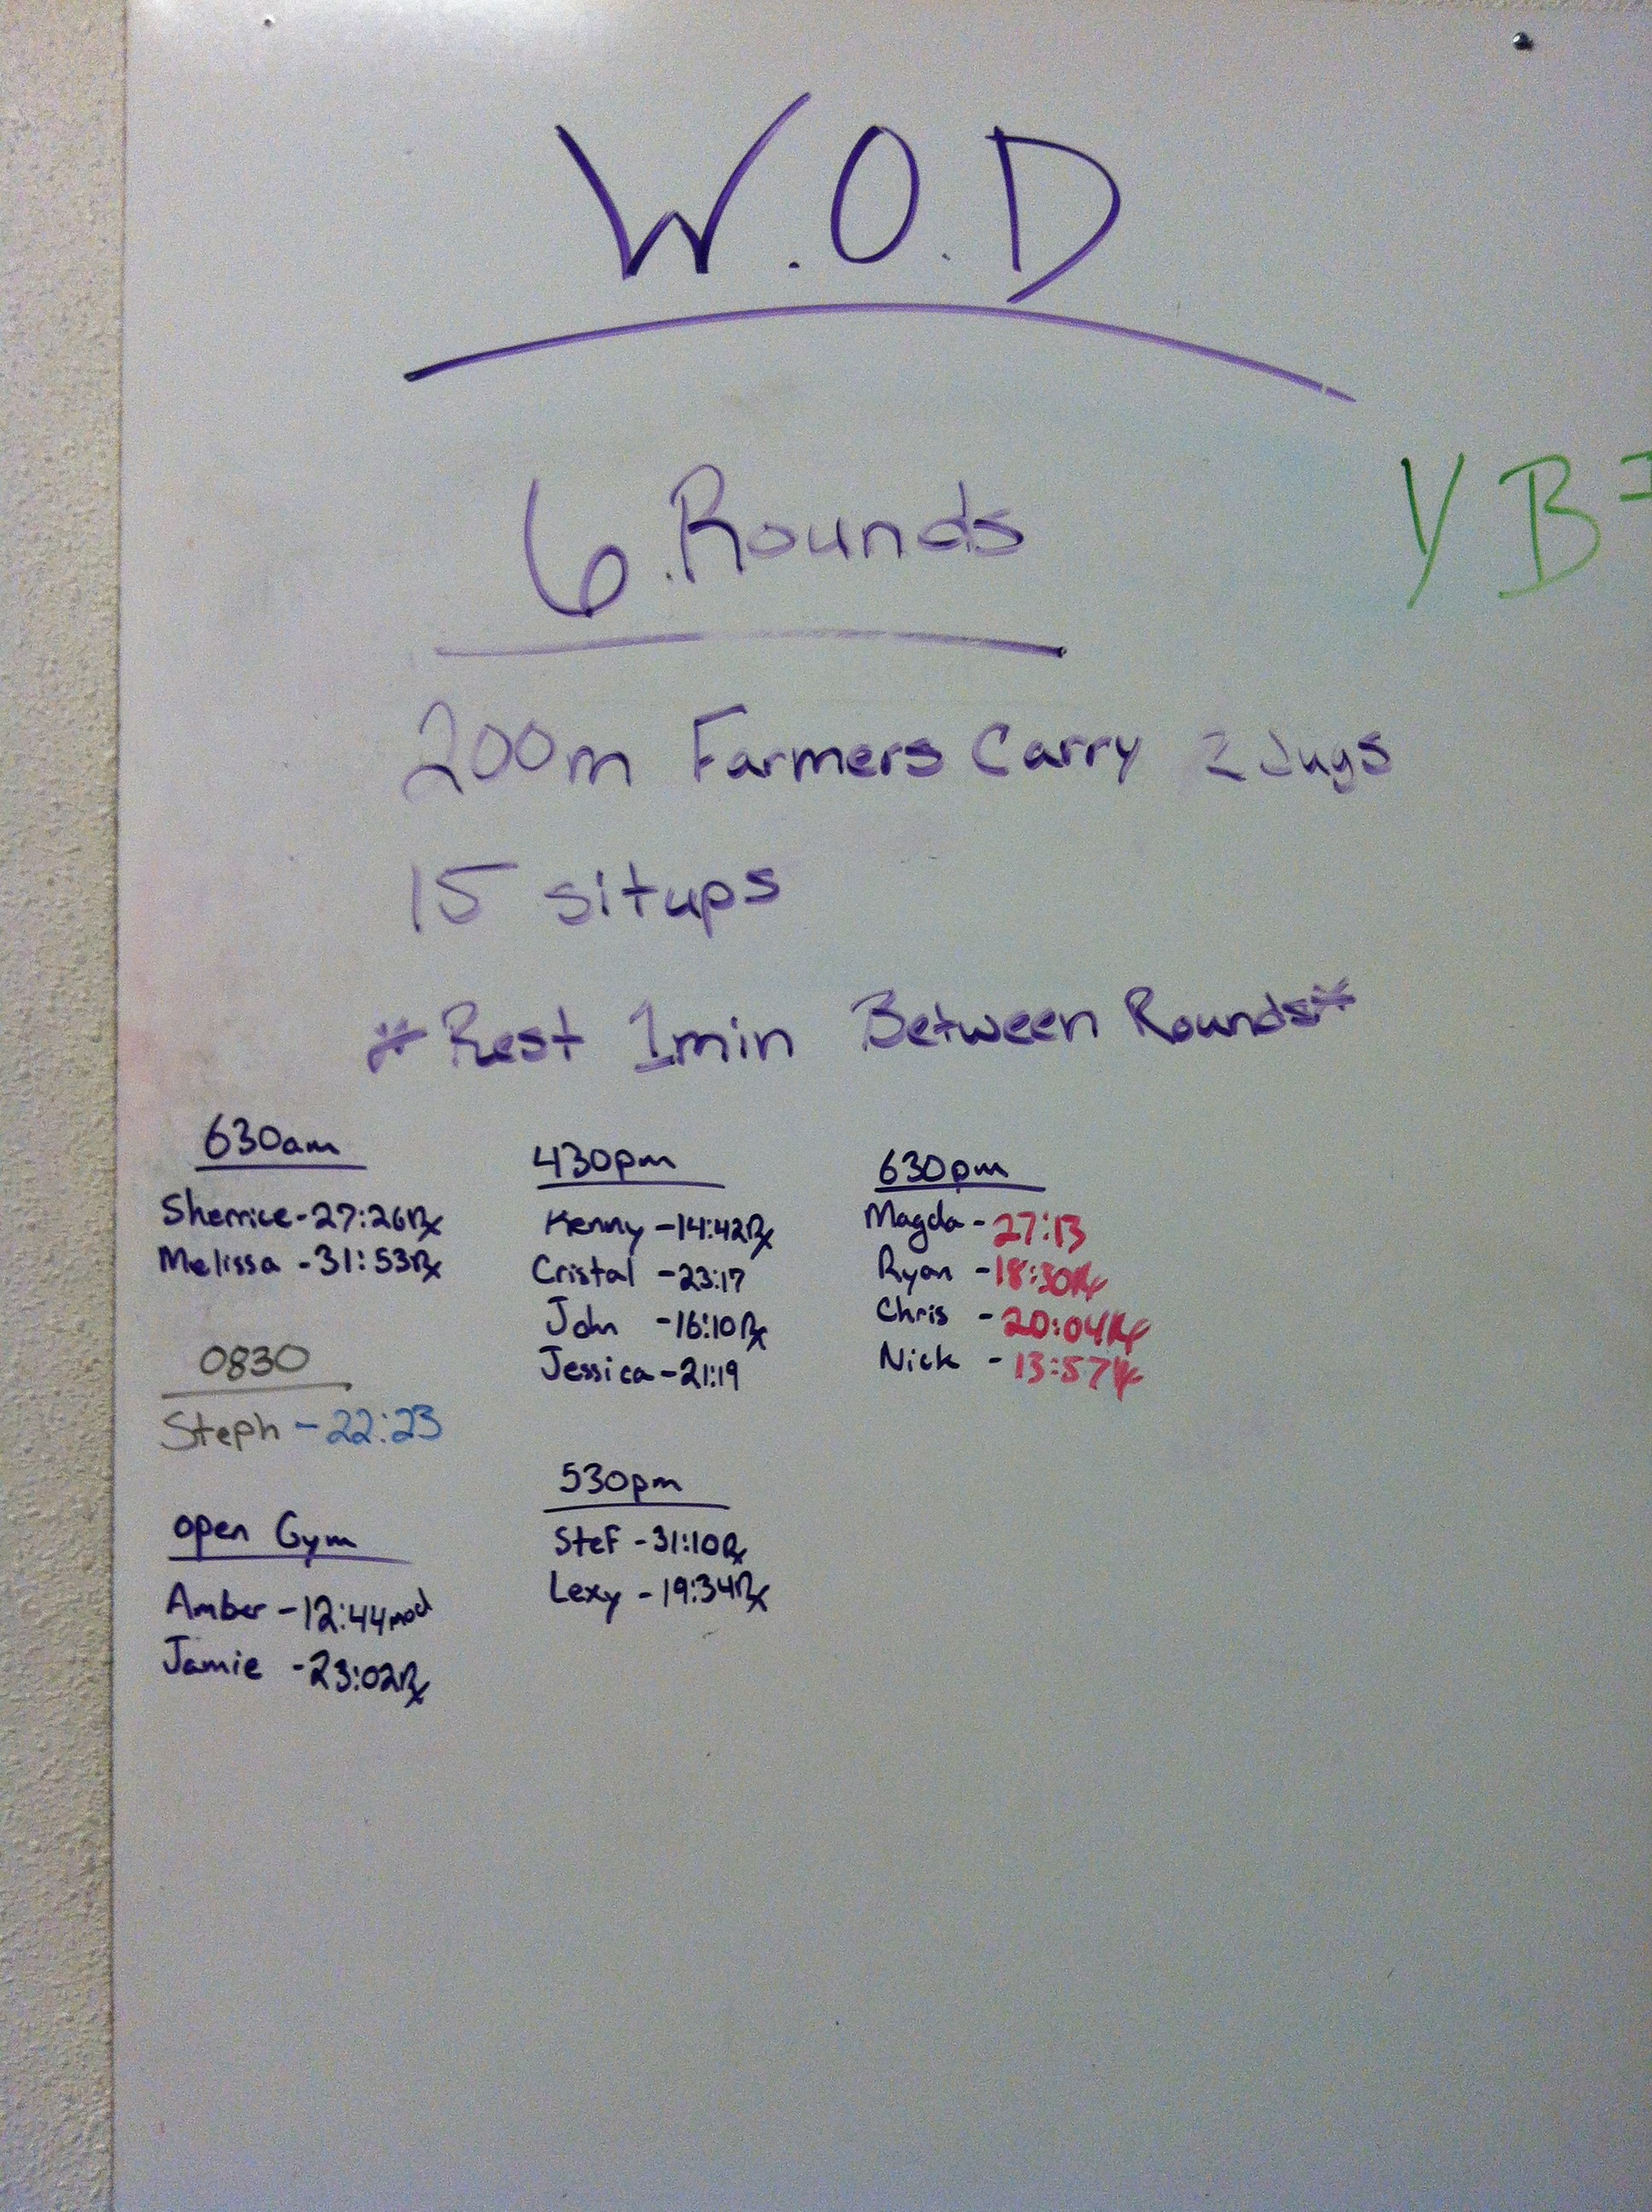 W.O.D
6 Rounds
Y B
200m Farmers Carry 2 Jugs
15 situps
*Rest 1min Between Rounds*
630am
Sherrice-27:26Rx
Melissa -31:53Rx
0830
Steph -22:23
open Gym
Amber -12:44mod
Jamie -23:02Rx
430pm
Kenny -14:42Rx
Cristal -23:17
John -16:10Rx
Jessica-21:19
530pm
Stef -31:10Rx
Lexy -19:34Rx
630pm
Magda-27:13
Ryan -18:30Rx
Chris -20:04Rx
Nick -13:57Rx